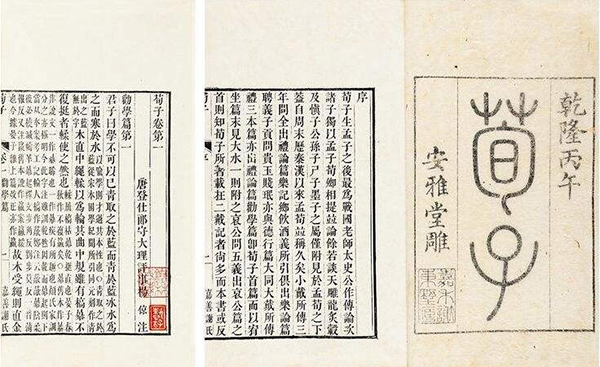 乾隆丙午
荀子
安雅堂雕
序
荀子生孟子之後最爲戰國老師太史公作傳論次
諸子獨以孟子荀卿相提並論餘若談天雕龍炙轂
及愼子公孫子尸子墨子之屬僅附見於孟荀之下
蓋自周末歷秦漢以來孟荀竝稱久矣小戴所傳三
年問全出禮論篇樂記鄉飲酒義所引俱出樂論篇
聘義子貢問貴玉賤珉亦與德行篇大同大戴所傳
禮三本篇亦出禮論篇勸學篇卽荀子首篇而以宥
坐篇末見大水一則附之哀公問五義出哀公篇之
首則知荀子所著載在二戴記者尚多而本書或反
荀子 序 嘉善謝氏
荀子卷第一
唐登仕郎守大理評事楊倞注
勸學篇第一
君子曰學不可以已靑取之於藍而靑於藍冰水爲
之而寒於水
木直中繩輮以爲輪其曲中規雖有槁暴不
復挺者輮使之然也
故木受繩則直金
荀子 卷一 勸學篇 一 嘉善謝氏